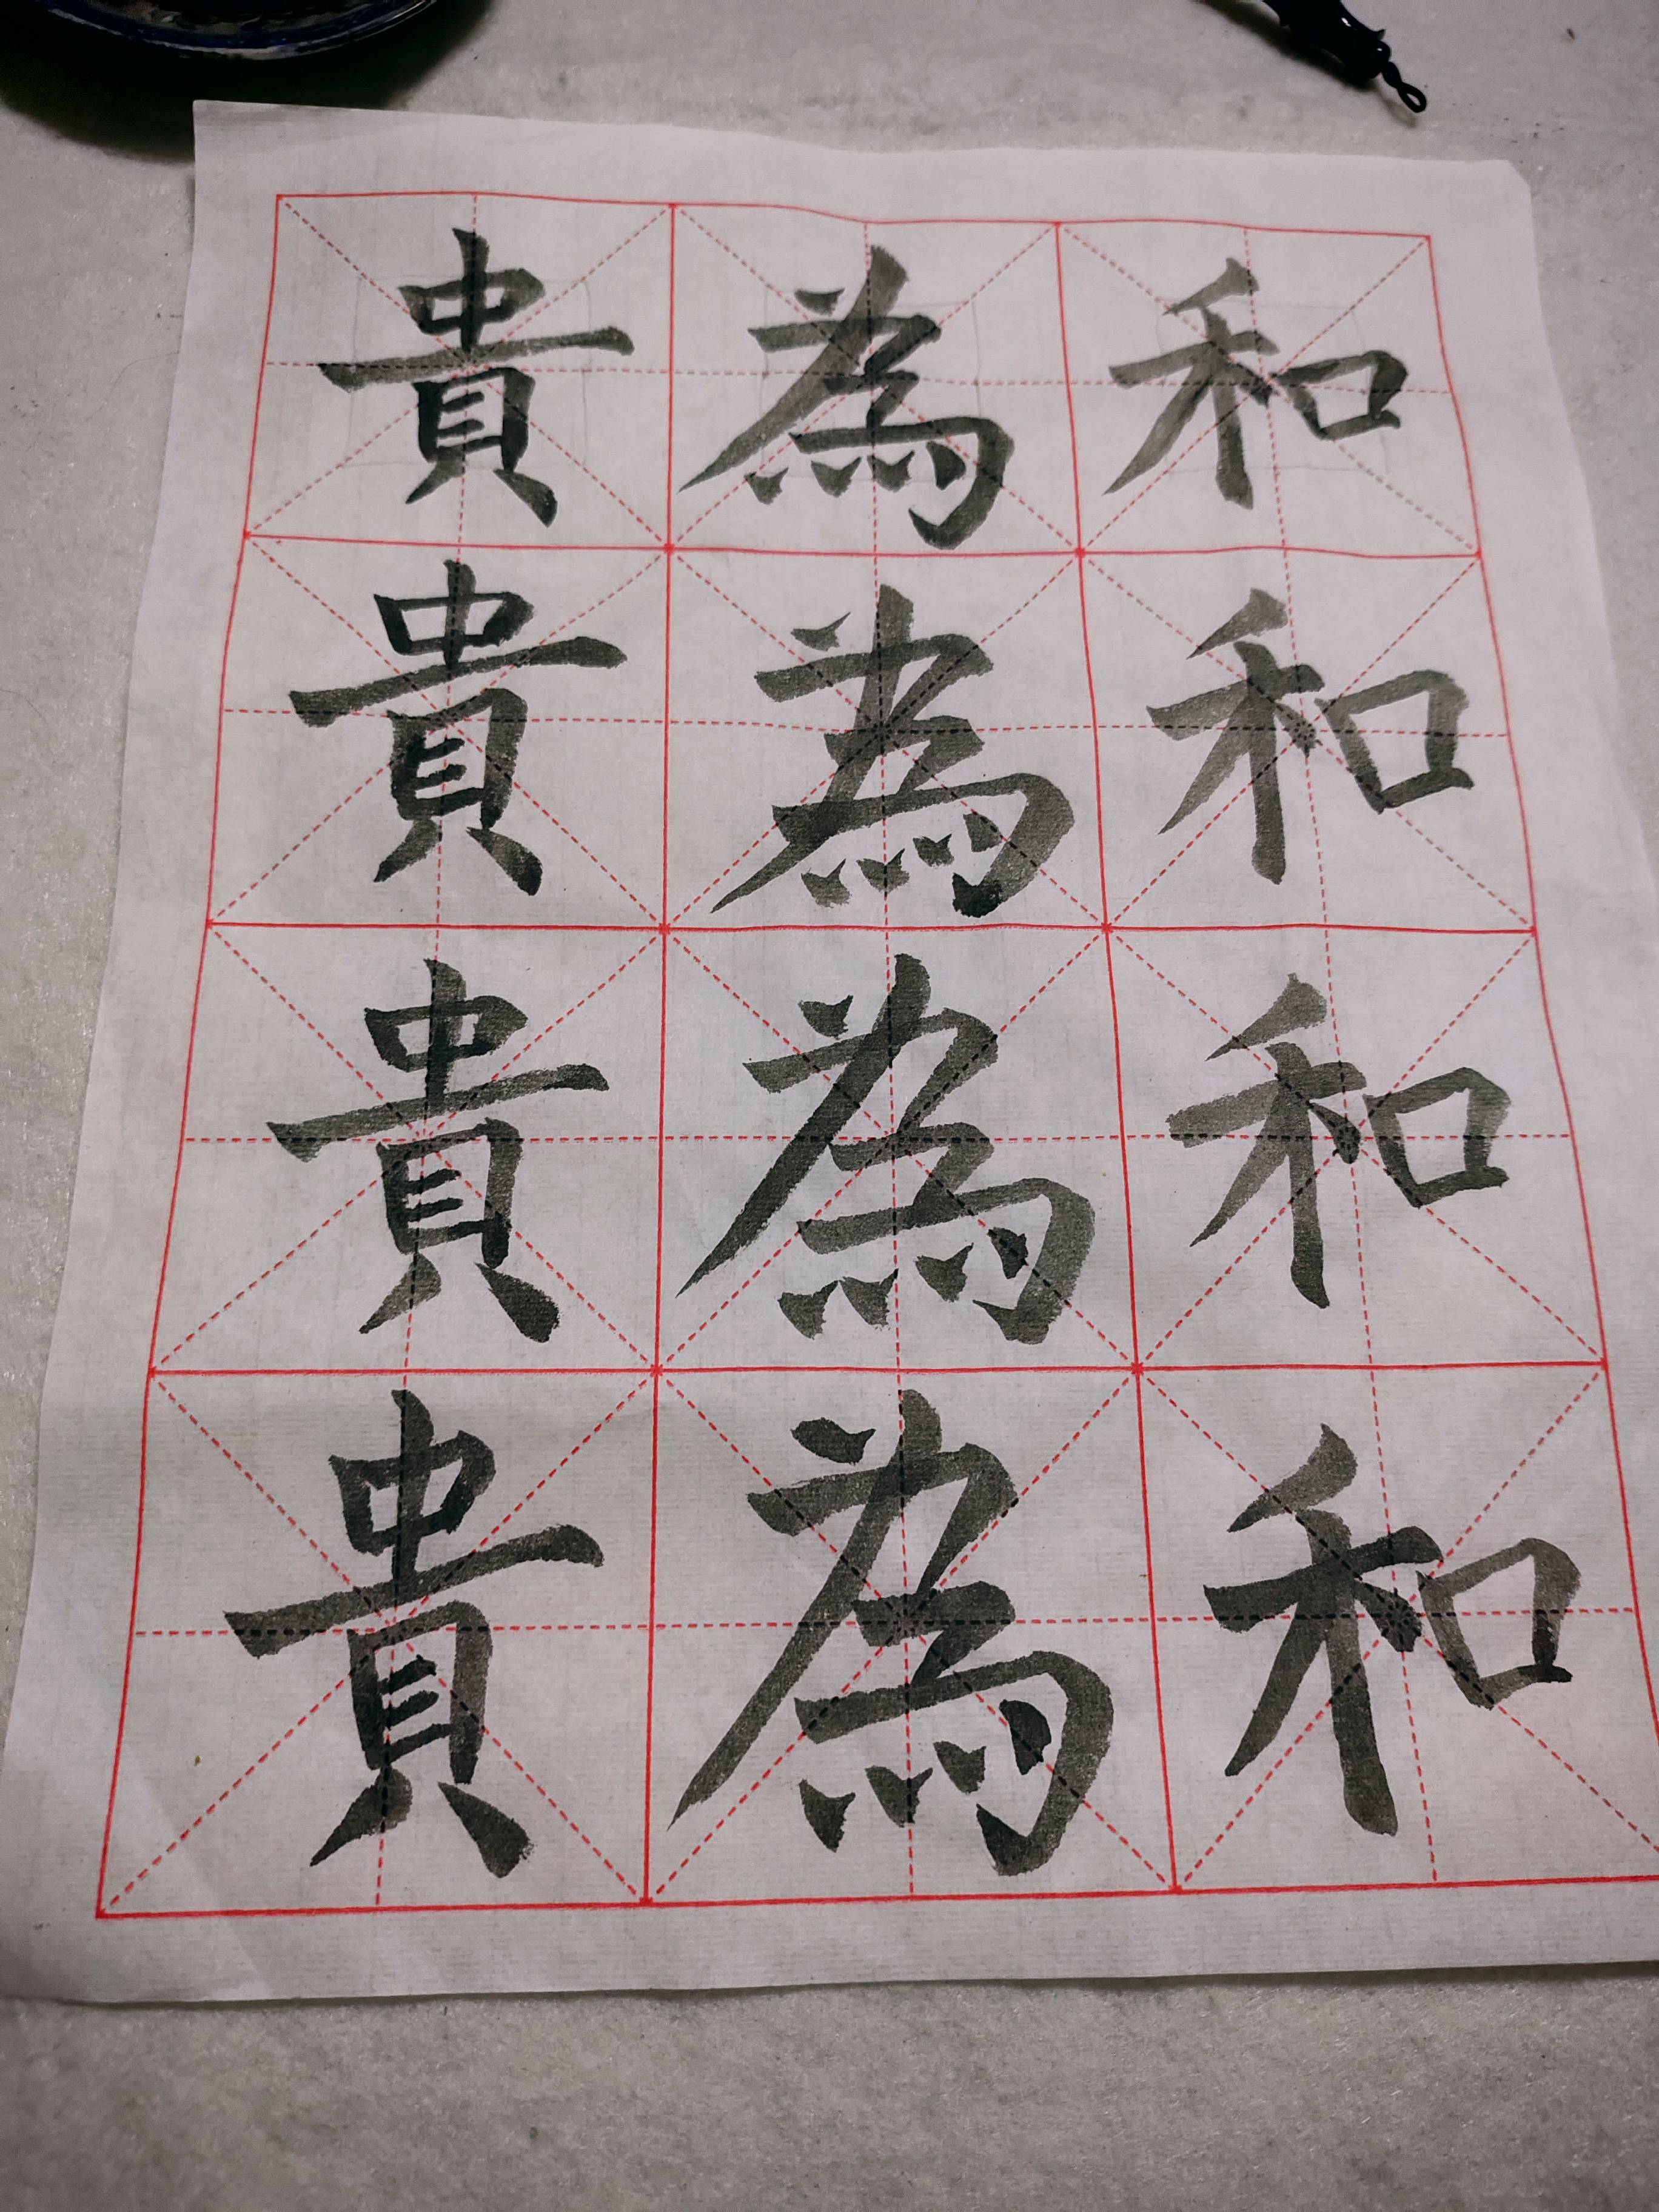 和和和和
為為為為
貴貴貴貴